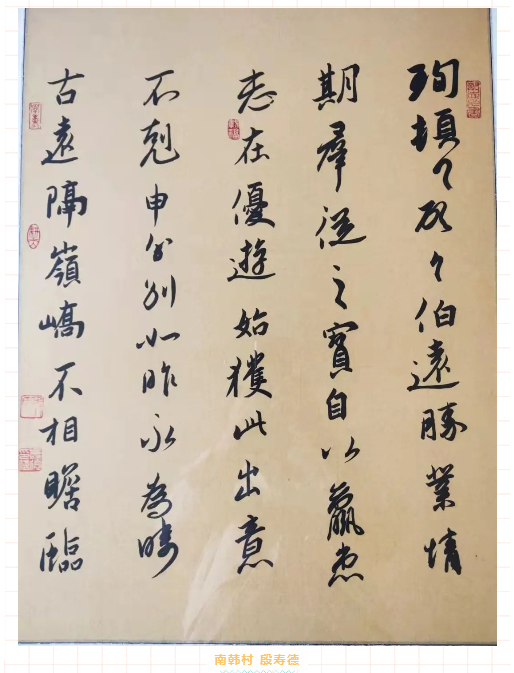 珣頓首頓首伯遠勝業情
期羣從之寶自以羸患
志在優遊始獲此出意
不剋申分別如昨永為疇
古遠隔嶺嶠不相瞻臨
南韩村 殷寿德